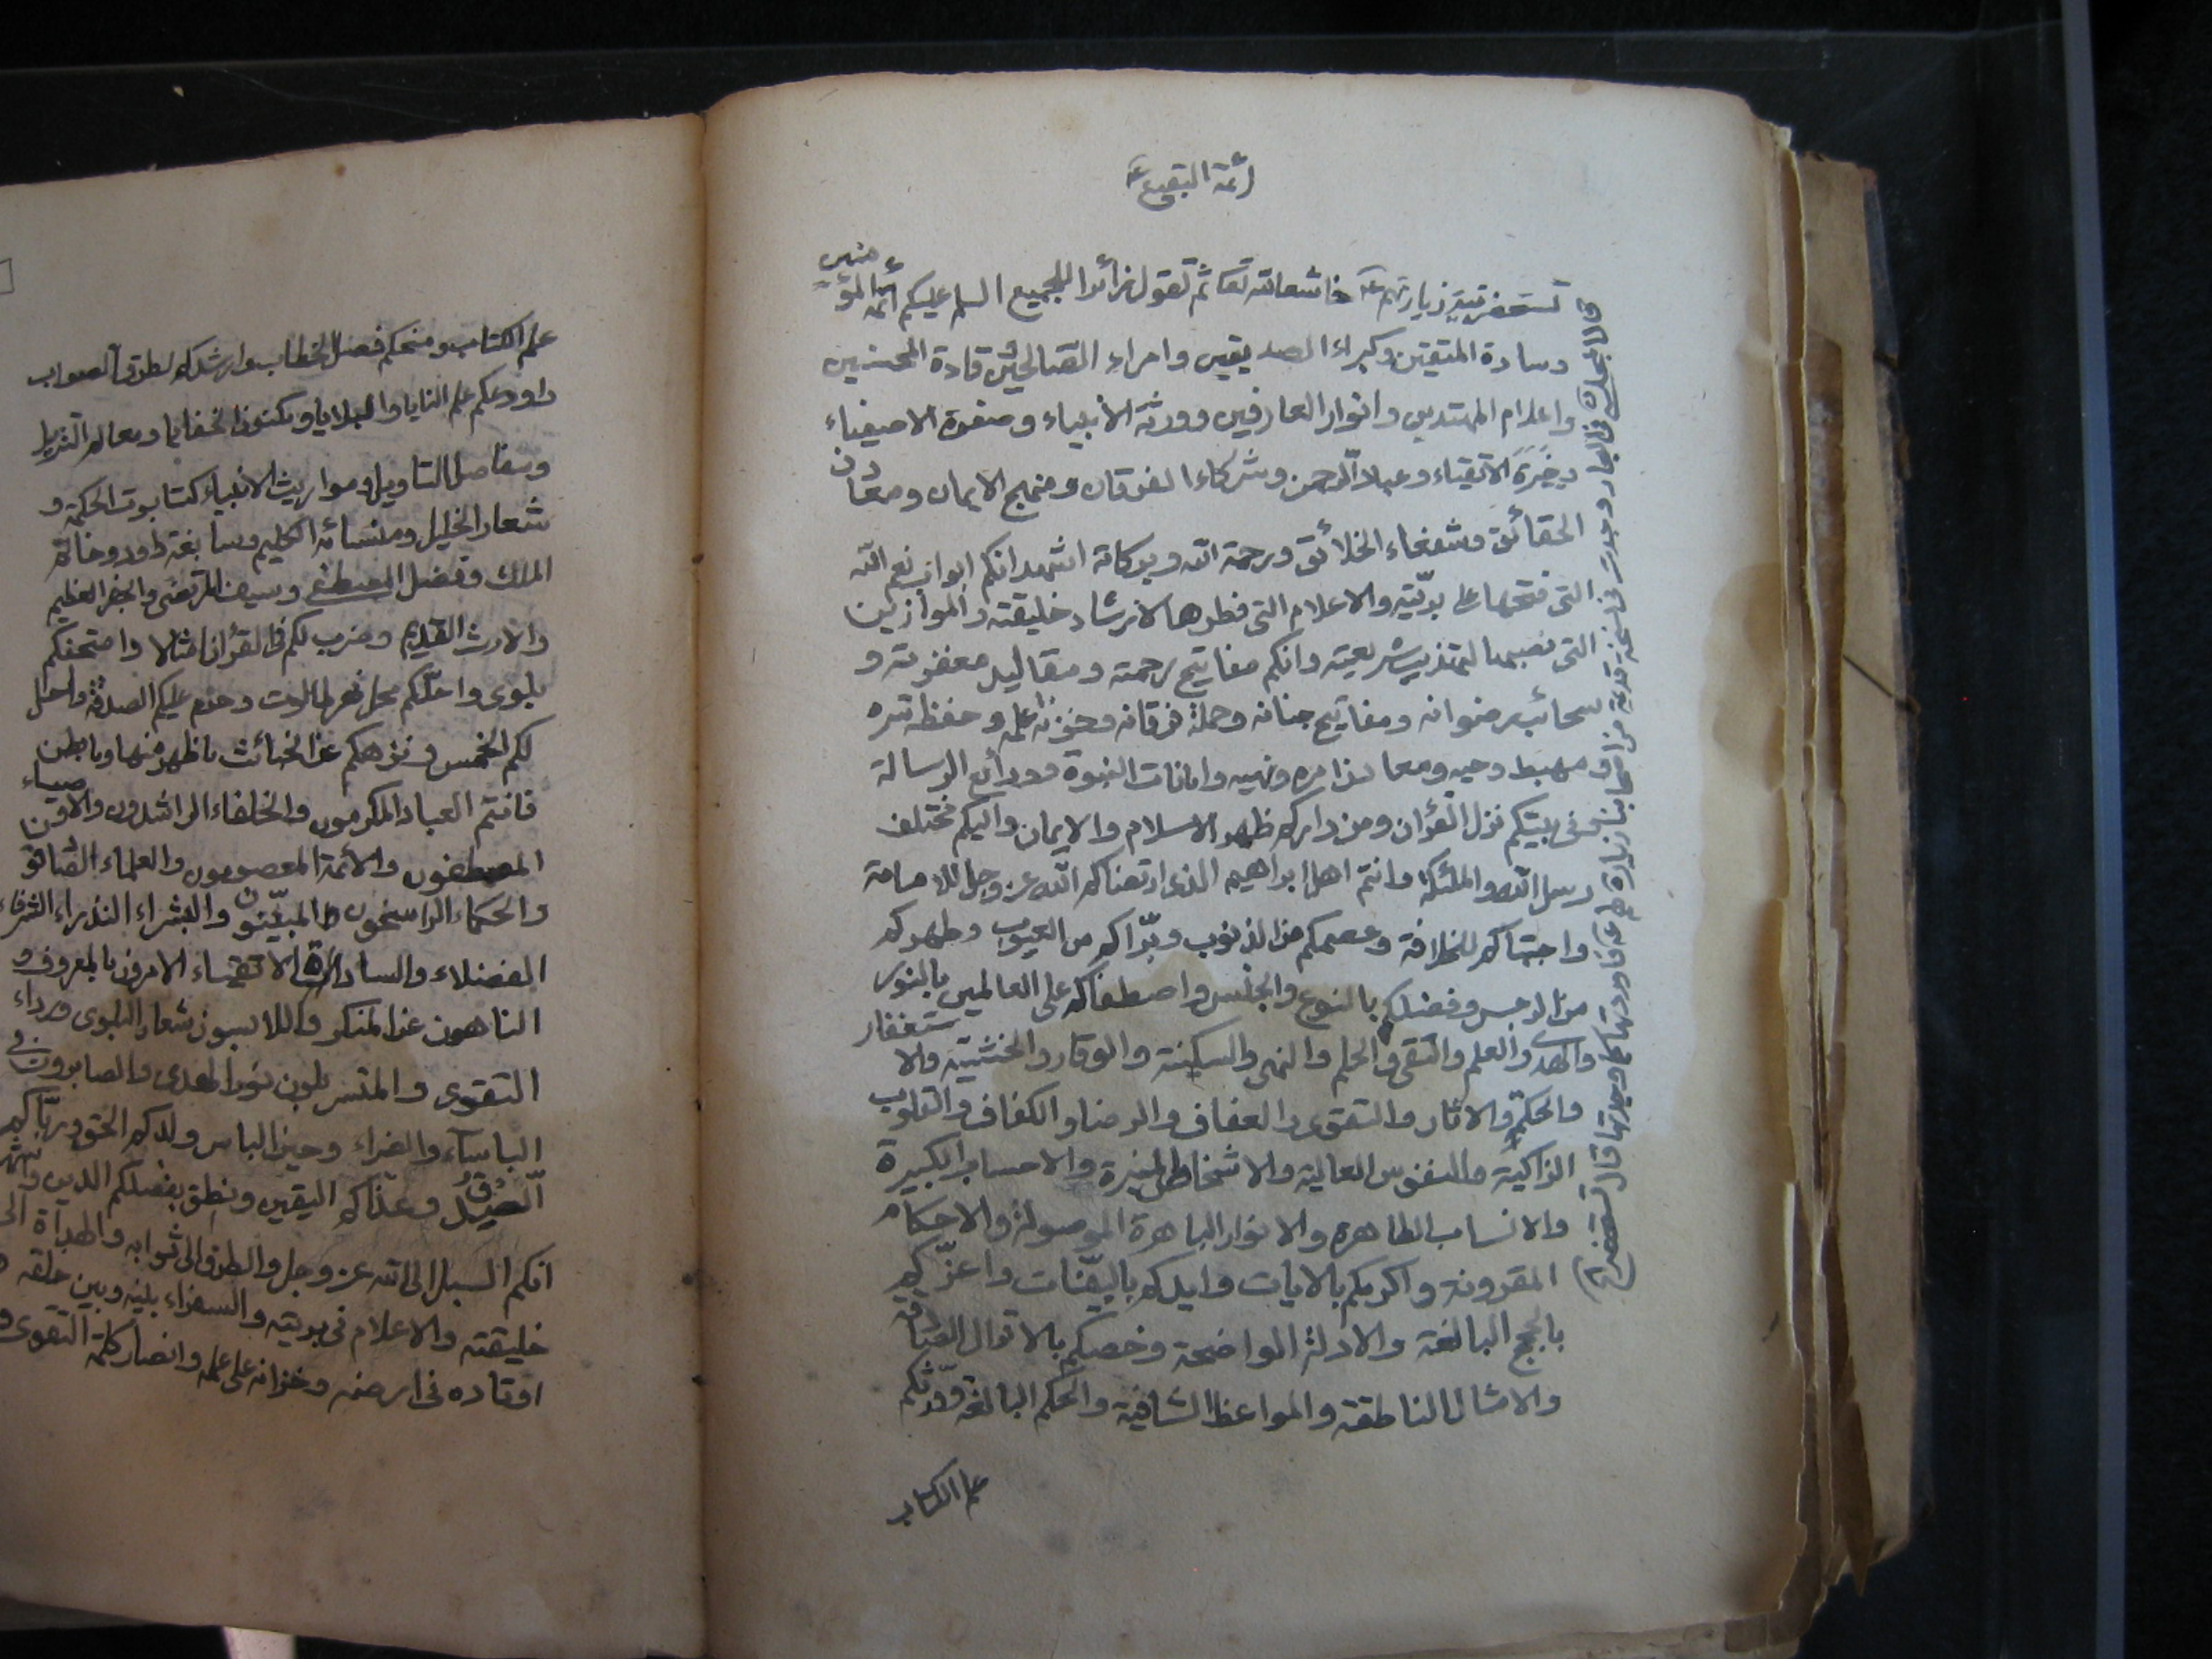 أئمة البقيع ع
تستحضر نية زيارتهم ع خاشعا لله تعا ثم تقول زائرا للجميع السلم عليكم أئمة المؤمنين
وسادة المتقين وكبراء الصديقين وامراء الصالحين وقادة المحسنين
واعلام المهتدين وانوار العارفين وورثة الانبياء وصفوة الاصفياء
وخيرة الاتقياء وعباد الرحمن وشركاء الفرقان ومنهج الايمان ومعادن
الحقائق وشفعاء الخلائق ورحمة الله وبركاته اشهد انكم ابواب نعم الله
التى فتحها على بريّته والاعلام التى فطرها لارشاد خليقته والموازين
التى نصبها لتهذيب شريعته وانكم مفاتيح رحمته ومقاليد مغفرته و
سحائب رضوانه ومفاتيح جنانه وحملة فرقانه وخزنة علمه وحفظة سره
ومهبط وحيه ومعادن امره ونهيه وامانات النبوة وودائع الرسالة
وفى بيتكم نزل القرآن ومن داركم ظهر الاسلام والايمان واليكم مختلف
رسل الله والملئكة وانتم اهل ابراهيم الذى ارتضاكم الله عز وجل للامامة
واجتباكم للخلافة وعصمكم من الذنوب وبرّاكم من العيوب وطهركم
من الرجس وفضلكم بالنوع والجنس واصطفاكم على العالمين بالنور
والهدى والعلم والتقى والحلم والنهى والسكينة والوقار والخشية والاستغفار
والحكمة والاثار والتقوى والعفاف والرضا والكفاف والقلوب
الزاكية والنفوس العالية والاشخاص المنيرة والاحساب الكبيرة
والانساب الطاهره والانوار الباهرة الموصولة والاحكام
المقرونة واكرمكم بالايات وايدكم بالبيّنات واعزّكم
بالحجج البالغة والادلة الواضحة وخصكم بالاقوال الصادقة
والامثال الناطقة والمواعظ الشافية والحكم البالغة وورّثكم
علم الكتاب
قال المجلسى فى البحار وجدت فى نسخة قديمة من اصحابنا زيارة لهم ع فاوردتها كما وجدتها قال تستحضر
علم الكتاب ومنحكم فصل الخطاب وارشدكم لطرق الصواب
واودعكم علم المنايا والبلايا ومكنون الخفايا ومعالم التنزيل
ومفاصل التاويل ومواريث الانبياء كتابوت الحكمة و
شعار الخليل ومنسأة الكليم وسابغة داود وخاتم
الملك وفضل المصطفى وسيف المرتضى والجفر العظيم
والارث القديم وضرب لكم فى القرآن امثالا وامتحنكم
بلوى واحلّكم محل نهر طالوت وحرم عليكم الصدقة واحل
لكم الخمس ونزهكم عن الخبائث ما ظهر منها وما بطن
فانتم العباد المكرمون والخلفاء الراشدون والاوصياء
المصطفون والائمة المعصومون والعلماء الصادقون
والحكماء الراسخون المبيّنون والبشراء النذراء الشرفاء
الفضلاء والسادات الاتقياء الامرون بالمعروف و
الناهون عن المنكر واللابسون شعار البلوى ورداء
التقوى والمتسربلون نور الهدى والصابرون فى
الباساء والضراء وحين الباس ولدكم الحق وربّاكم
الصدق وغذّاكم اليقين ونطق بفضلكم الدين واشهد
انكم السبل الى الله عز وجل والطرق الى ثوابه والهداة الى
خليقته والاعلام فى بريته والسفراء بينه وبين خلقه و
اوتاده فى ارضه وخزانه على علمه وانصار كلمة التقوى و